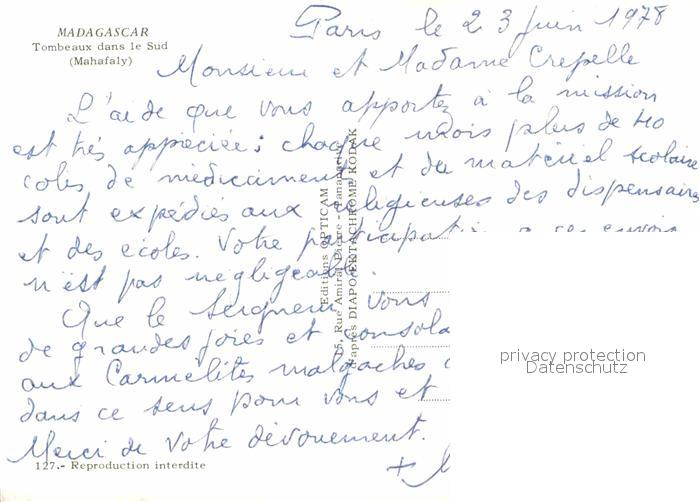 MADAGASCAR
Tombeaux dans le Sud
(Mahafaly)
Paris le 23 juin 1978
Monsieur et Madame Crepelle
L'aide que vous apportez à la mission
est très appréciée; chaque mois plus de 40
colis de médicaments et du matériel scolaire
sont expédiés aux religieuses des dispensaires
et des écoles. Votre participation à ces envois
n'est pas négligeable.
Que le Seigneur vous
de grandes joies et
aux Carmélites malgaches
dans ce sens pour vous et
Merci de votre dévouement.
+
127.- Reproduction interdite
Editions OPTICAM
5, Rue Amiral Pierre - Tananarive
d'après DIAPO EKTACHROME KODAK
privacy protection
Datenschutz